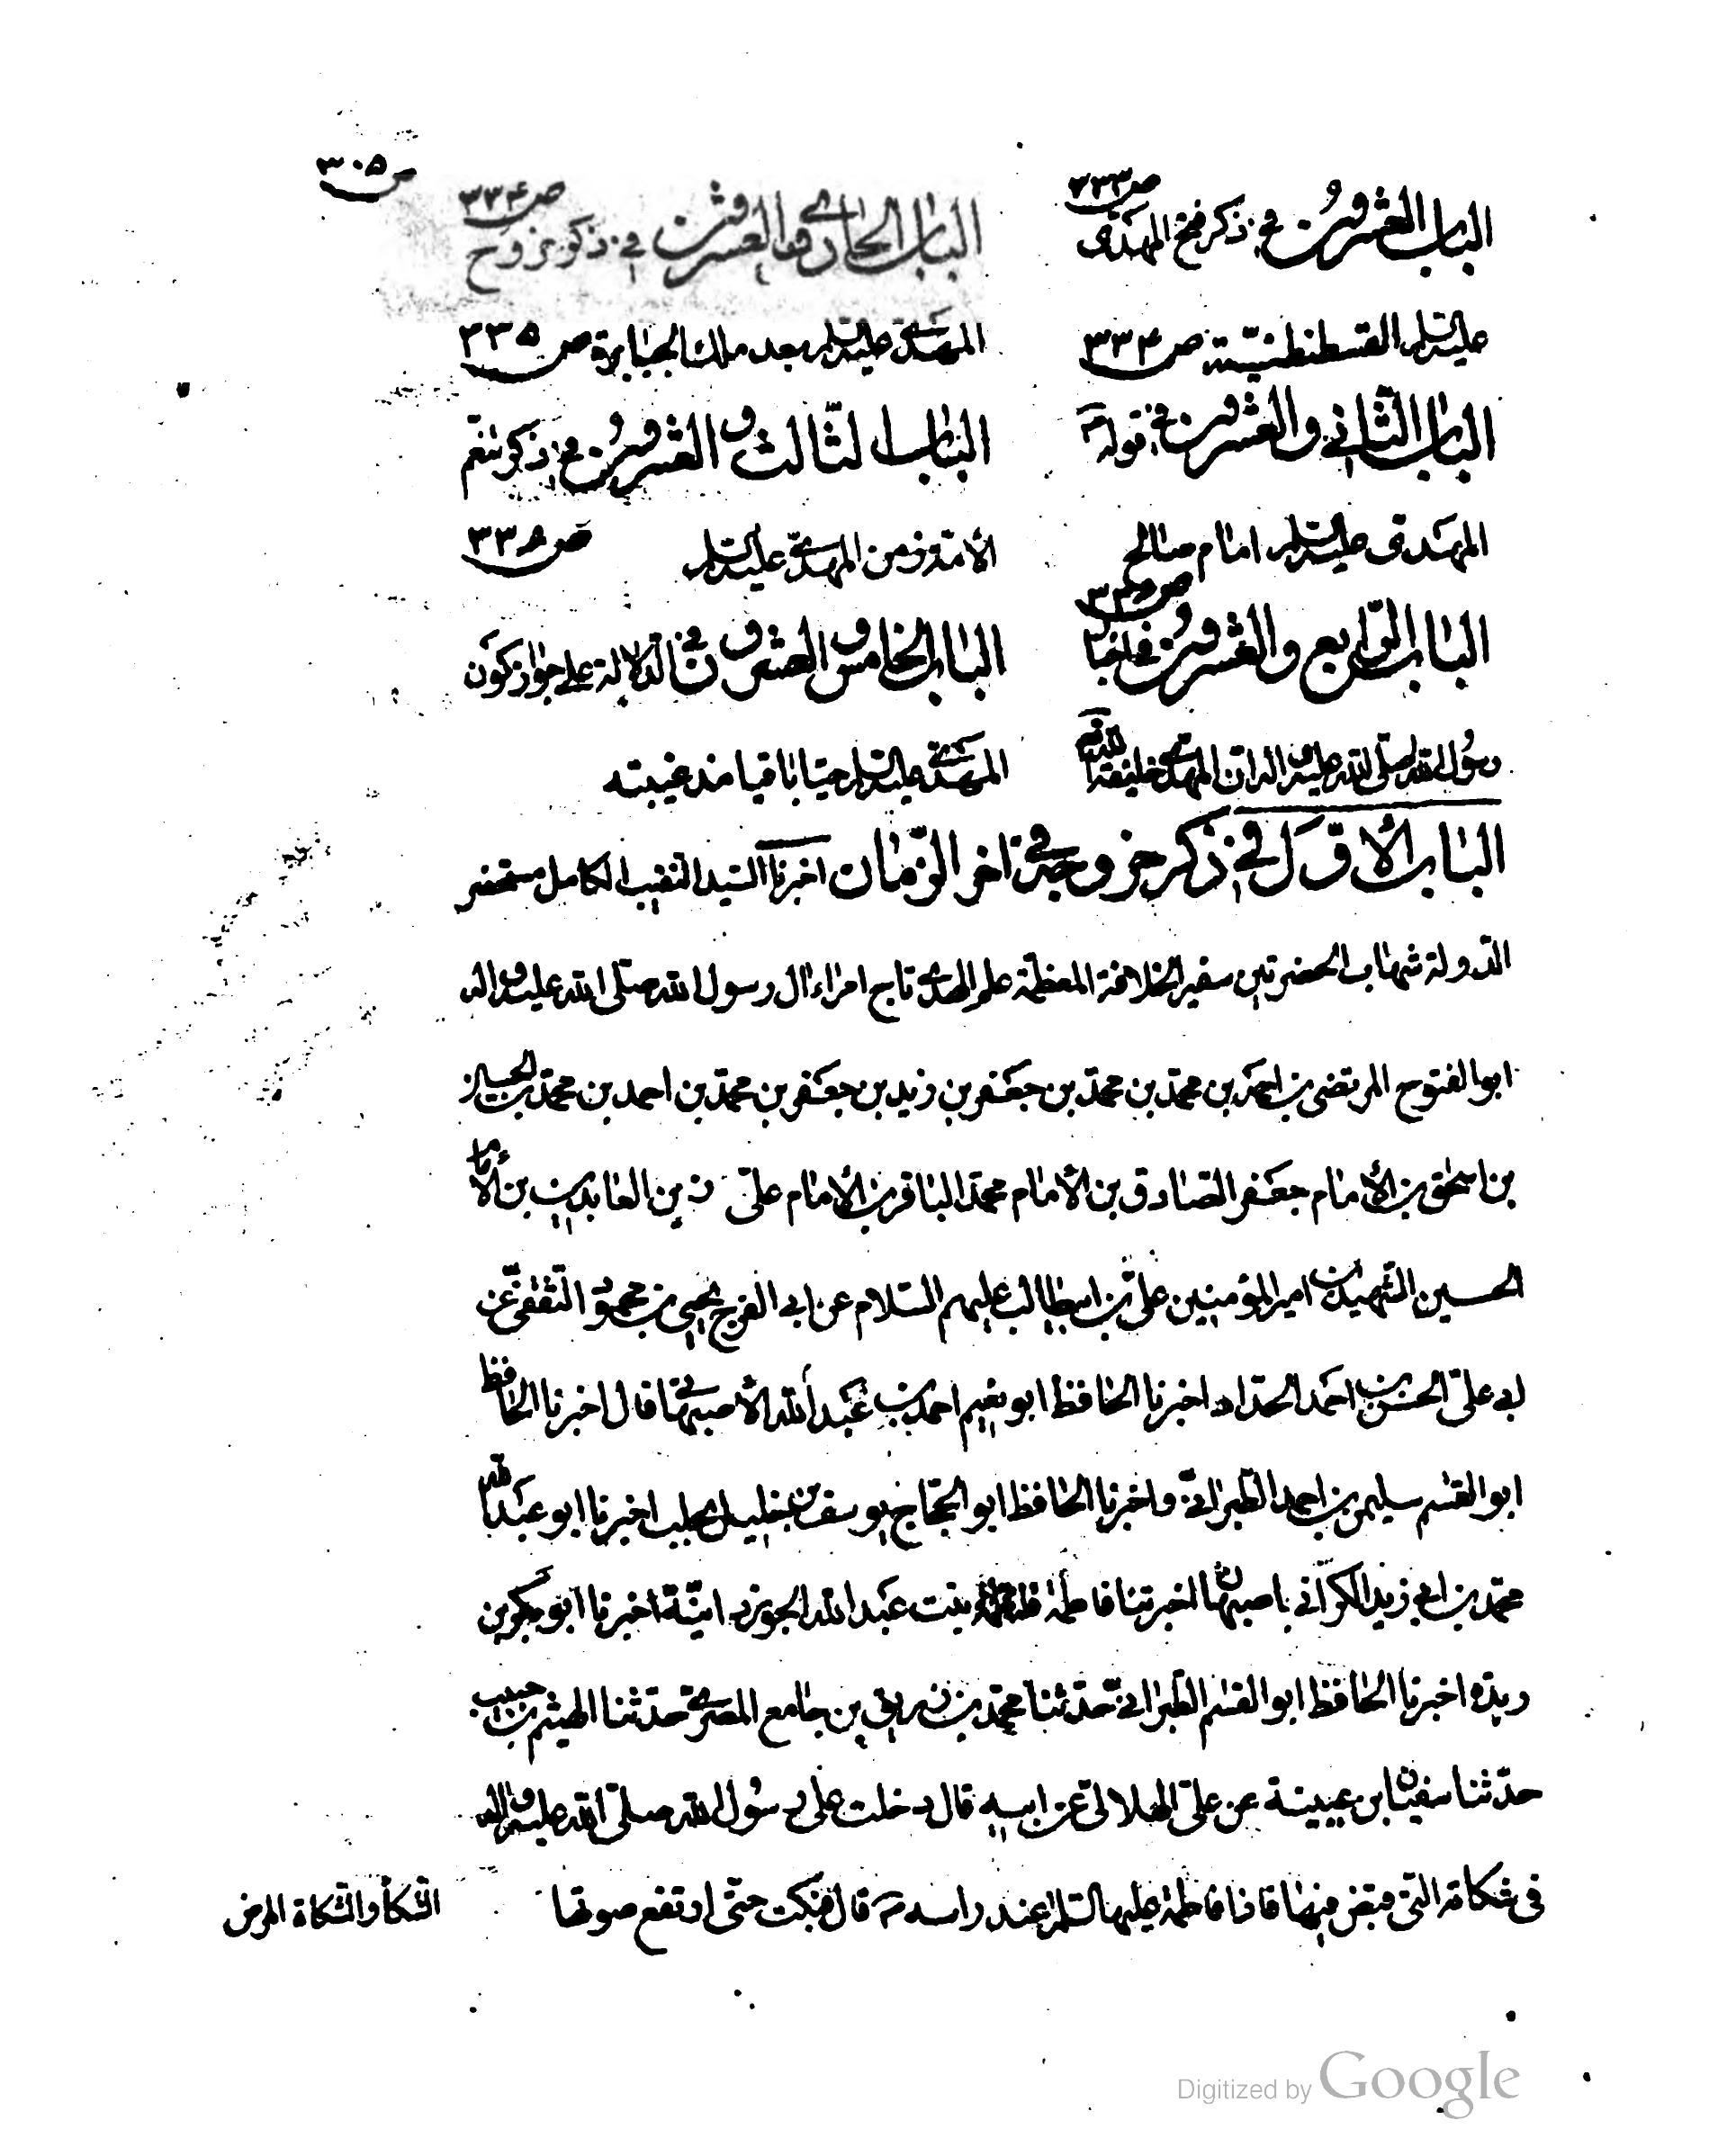 ص ٣٠٥
الباب العشرون في ذكر فتح المهدى ص ٣٣٣
الباب الحادي والعشرون في ذكر خروج ص ٣٣٤
عليه السلم القسطنطنيّة ص ٣٣٤
المهدي عليه السلم بعد ملك الجبابرة ص ٣٣٥
الباب الثاني والعشرون في قوله
الباب الثالث والعشرون في ذكر تنعّم
المهدي عليه السلم امام صالح
الأمّة زمن المهدي عليه السلم ص ٣٣٨
الباب الرّابع والعشرون في اخبار
الباب الخامس والعشرون في الدّلالة على جواز كون
رسول الله صلى الله عليه واله ان المهدي خليفة الله
المهدي عليه السلم حيّا باقيا منذ غيبته
الباب الأوّل في ذكر خروجه في آخر الزّمان اخبرنا السّيد النقيب الكامل مستحضر
الدّولة شهاب الحضرتين سفير الخلافة المعظمة علم الهدى تاج امراء ال رسول الله صلّى الله عليه واله
ابوالفتوح المرتضى بن احمد بن محمّد بن محمّد بن جعفر بن زيد بن جعفر بن محمّد بن احمد بن محمّد بن الحسين
بن اسحق بن الأمام جعفر الصّادق بن الأمام محمّد الباقر بن الأمام علىّ زين العابدين بن الأمام
الحسين الشّهيد بن امير المؤمنين علىّ بن ابيطالب عليهم السّلام عن ابي الفرج يحيى بن محمود الثّقفىّ عن
ابي علىّ الحسن بن احمد الحدّاد اخبرنا الحافظ ابو نعيم احمد بن عبد الله الأصبهاني قال اخبرنا الحافظ
ابوالقسم سليمن بن احمد الطّبرانىّ واخبرنا الحافظ ابو الحجّاج يوسف بن خليل بحلب اخبرنا ابو عبد الله
محمّد بن ابي زيد الكرّانى باصبهان اخبرتنا فاطمة بنت عبد الله الجوزدانيّة اخبرنا ابو بكر بن
ريذه اخبرنا الحافظ ابوالقسم الطّبرانىّ حدّثنا محمّد بن زريق بن جامع المصرىّ حدّثنا الهيثم بن حبيب
حدّثنا سفيان بن عيينة عن علىّ الهلالىّ عن ابيه قال دخلت على رسول الله صلّى الله عليه واله
فى شكاته الّتى قبض فيها فاذا فاطمة عليها السّلم عند راسه قال فبكت حتّى ارتفع صوتها
الشّكأ والشّكاة المرض
Digitized by Google